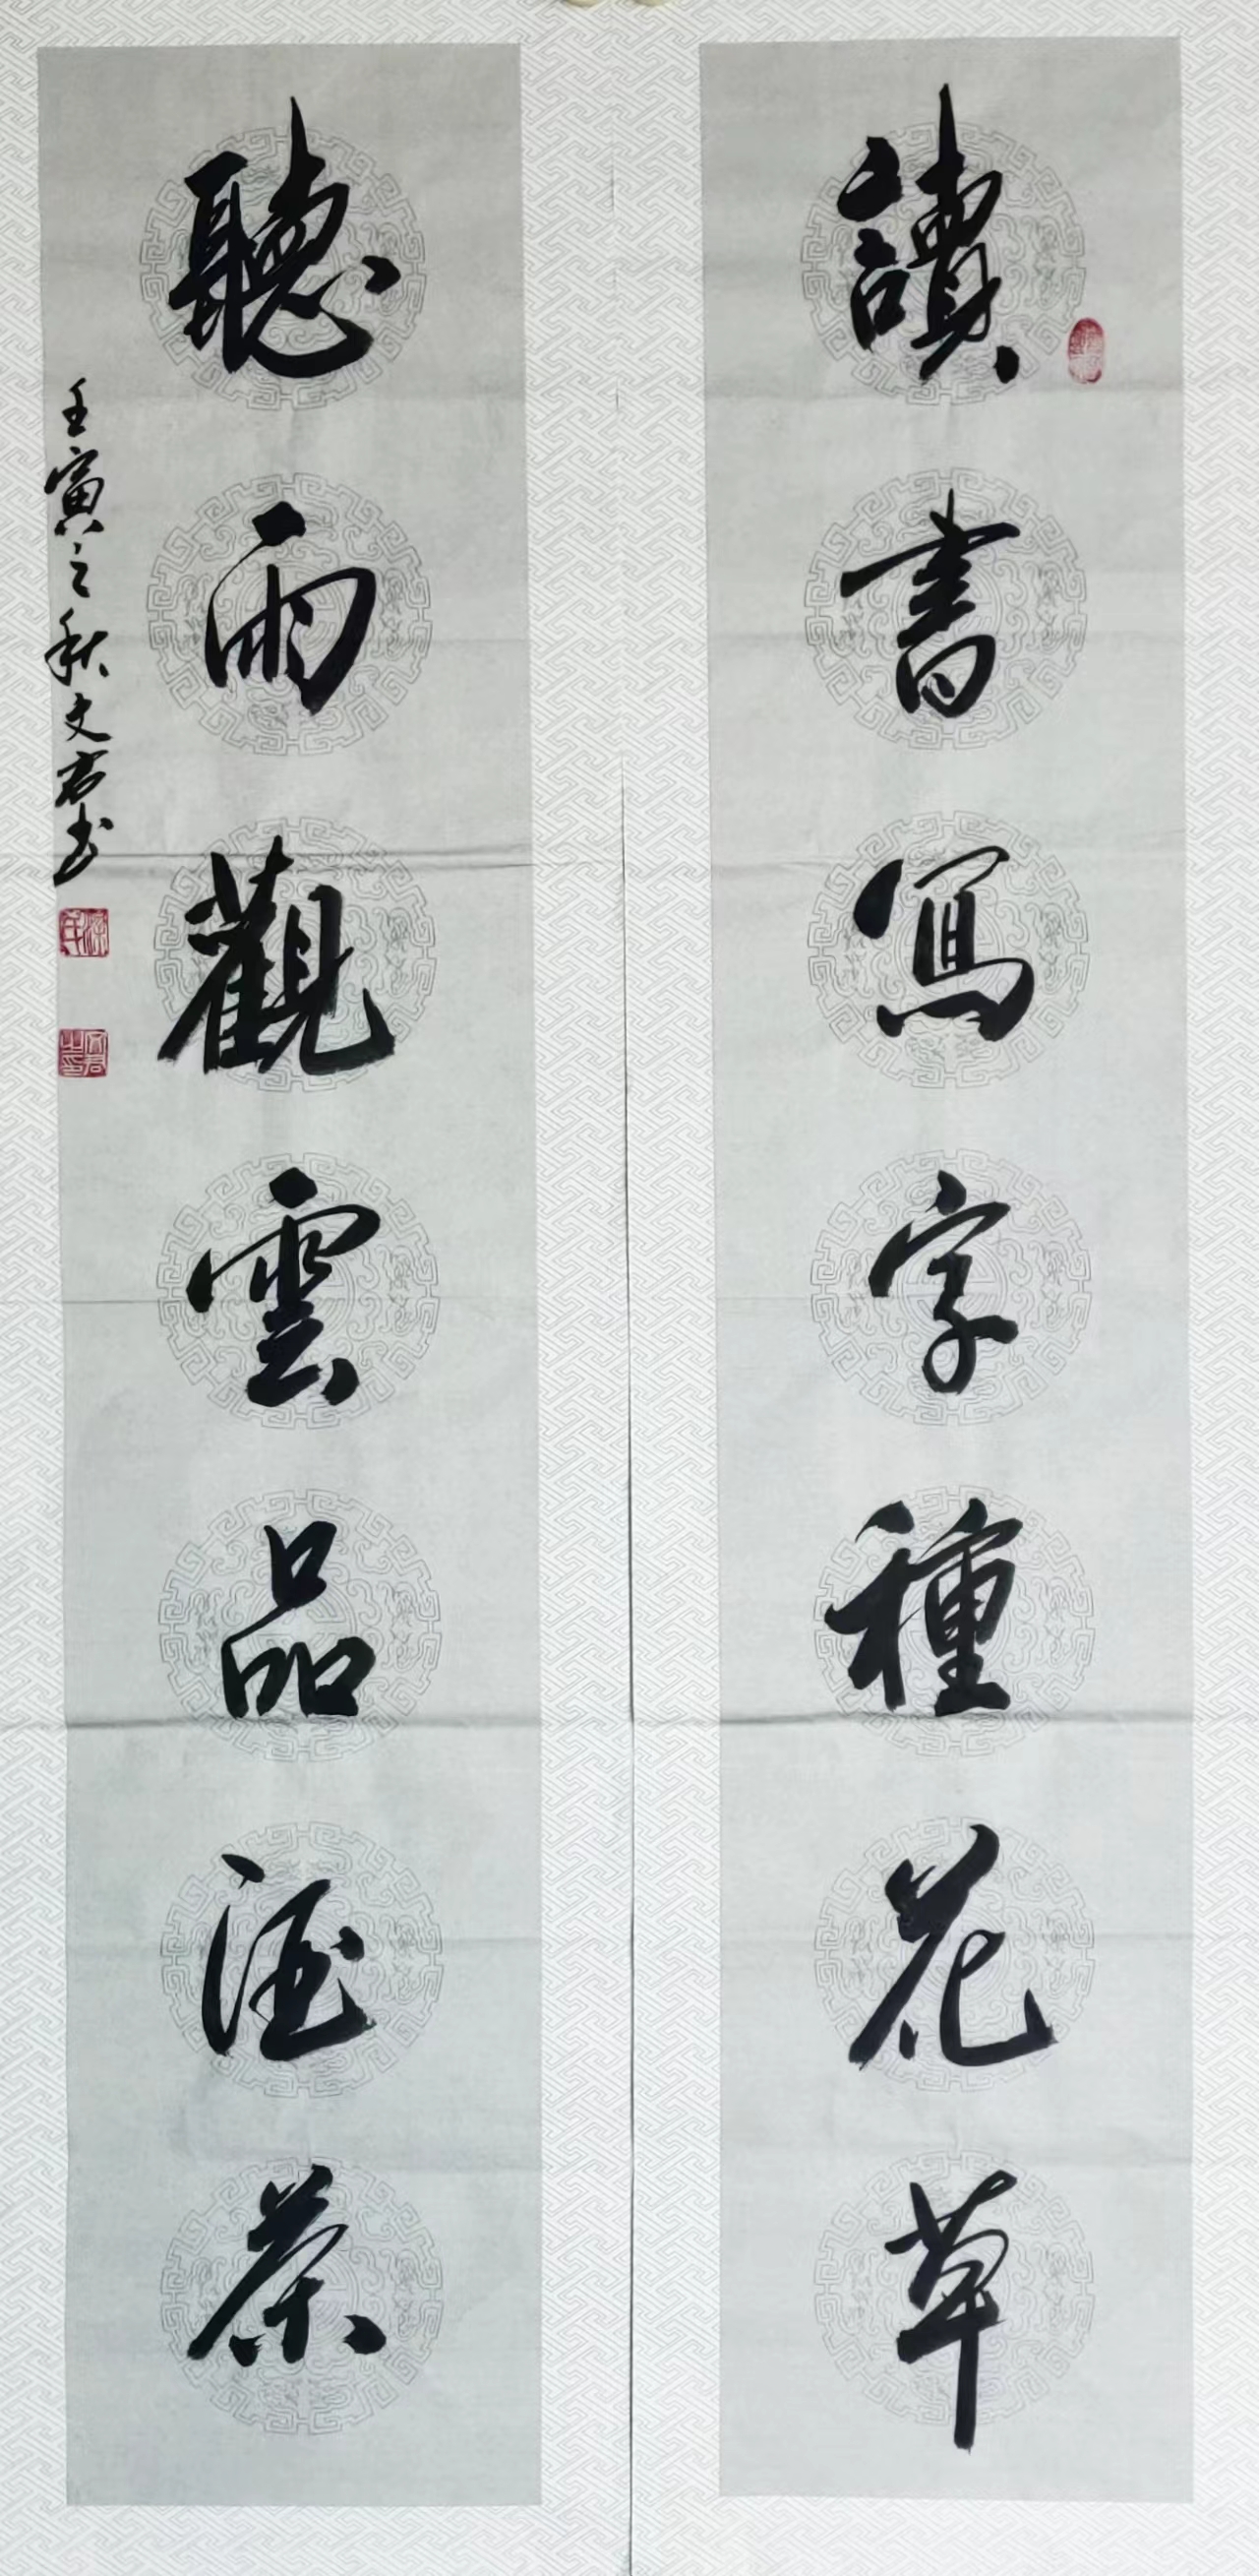 讀書寫字種花草
聽雨觀雲品酒茶
壬寅之秋文君书